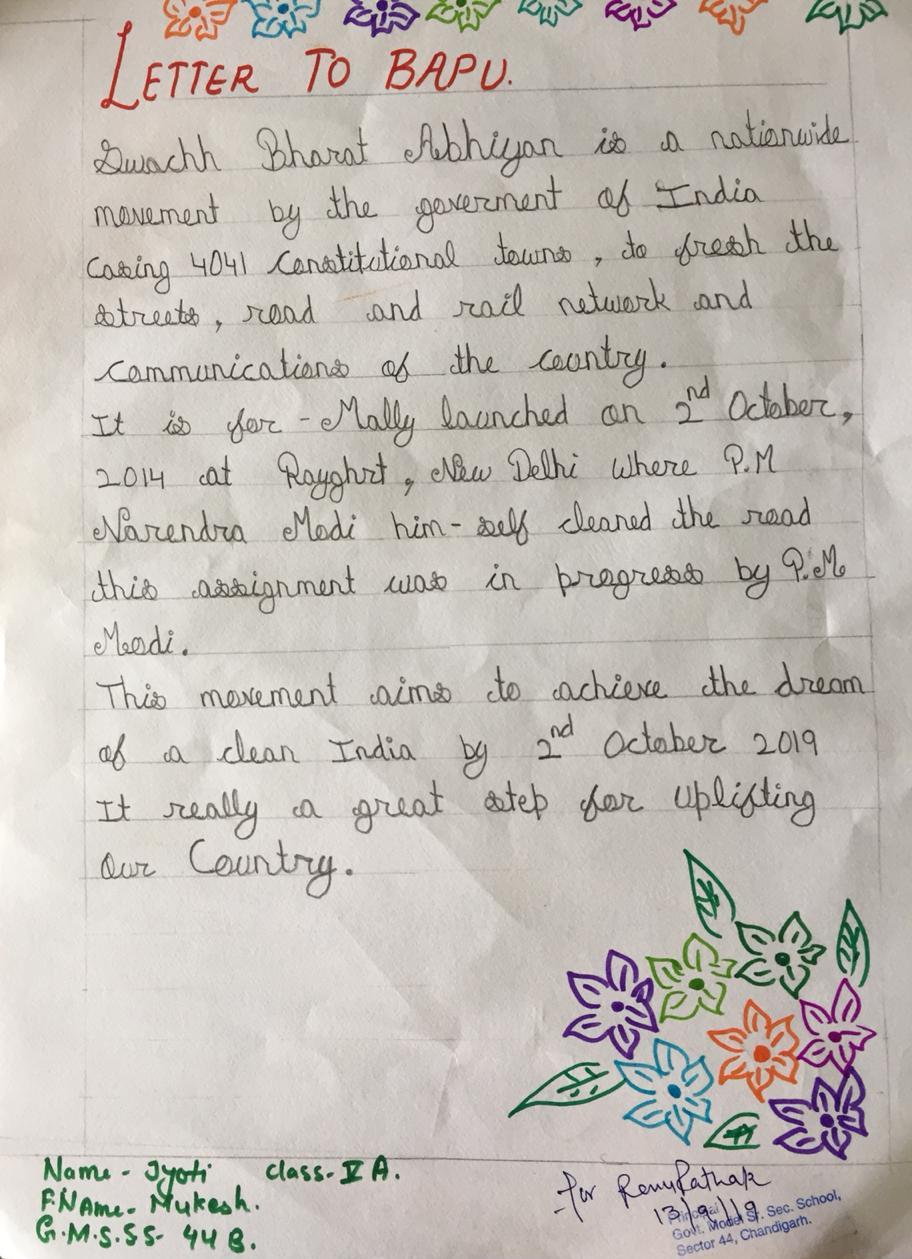 LETTER TO BAPU.
Swachh Bharat Abhiyan is a nationwide
movement by the goverment of India
Casing 4041 Constitutional towns, to fresh the
streets, road and rail network and
communications of the country.
It is for-Mally launched on 2nd October,
2014 at Rayghrt, New Delhi where P.M
Narendra Modi him-self cleaned the road
this assignment was in progress by P.M
Modi.
This movement aims to achieve the dream
of a clean India by 2nd October 2019
It really a great step for uplifting
Our Country.
Name - Jyoti class-V A.
F.NAme- Mukesh.
G.M.S.SS- 44 B.
for Renu Pathak
13/9/19
Principal
Govt. Model Sr. Sec. School,
Sector 44, Chandigarh.